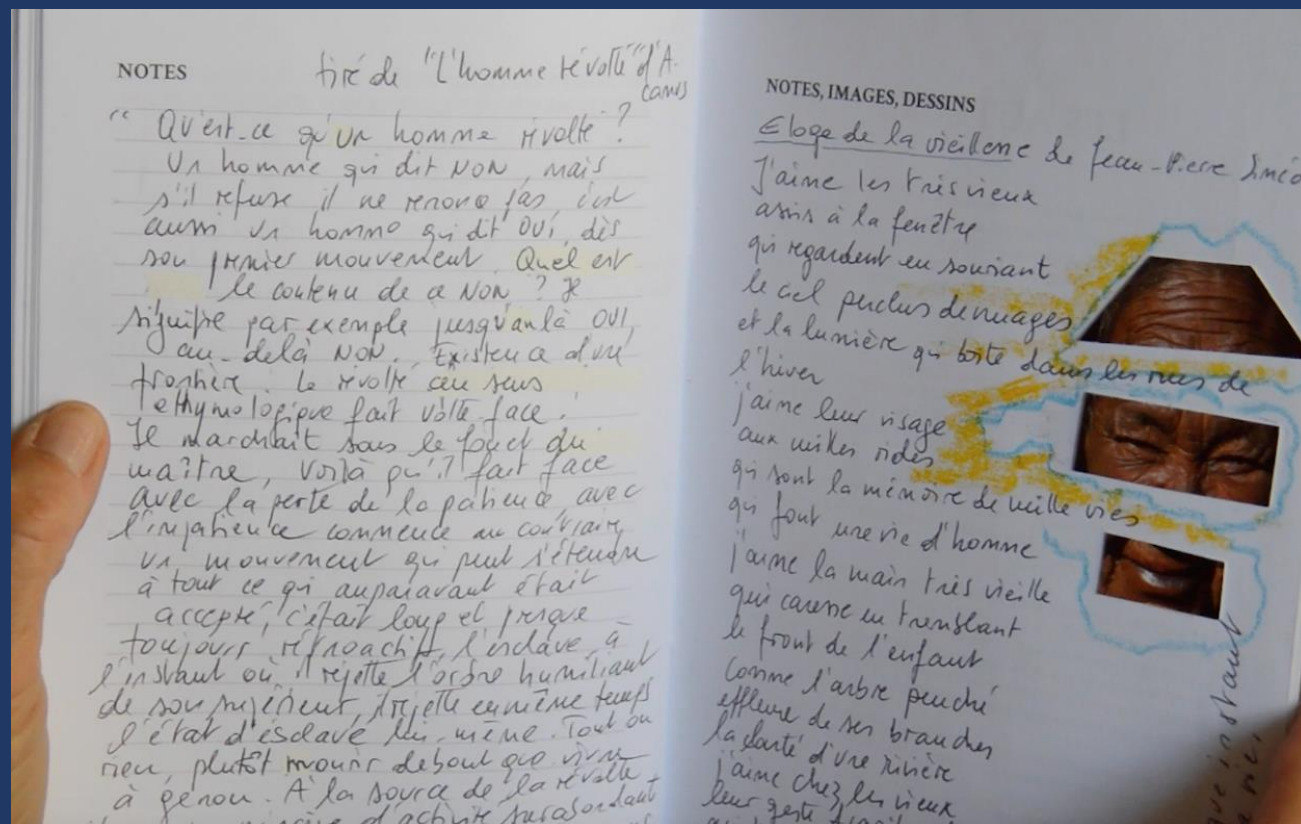 NOTES
tiré de "L'homme révolté" d'A.
Camus
" Qu'est-ce qu'un homme révolté ?
Un homme qui dit NON, mais
s'il refuse il ne renonce pas, c'est
aussi un homme qui dit OUI, dès
son premier mouvement. Quel est
le contenu de ce NON ? Il
signifie par exemple jusque là OUI,
au-delà NON. Existence d'une
frontière. Le révolté au sens
ethymologique fait volte-face.
Il marchait sous le fouet du
maître, voilà qu'il fait face
avec la perte de la patience, avec
l'impatience commence au contraire
un mouvement qui peut s'étendre
à tout ce qui auparavant était
accepté,
toujours rétroactif, l'esclave, à
l'instant où il rejette l'ordre humiliant
de son supérieur, il rejette en même temps
l'état d'esclave lui-même. Tout ou
rien, plutôt mourir debout que vivre
à genou. A la source de la révolte
d'activité surabondant
NOTES, IMAGES, DESSINS
Eloge de la vieillesse de Jean-Pierre Siméo
J'aime les très vieux
assis à la fenêtre
qui regardent en souriant
le ciel perclus de nuages
et la lumière qui boite dans les rues de
l'hiver
j'aime leur visage
aux milles rides
qui sont la mémoire de mille vies
qui font une vie d'homme
j'aime la main très vieille
qui caresse en tremblant
le front de l'enfant
comme l'arbre penché
effleure de ses branches
la clarté d'une rivière
j'aime chez les vieux
leur geste
instant